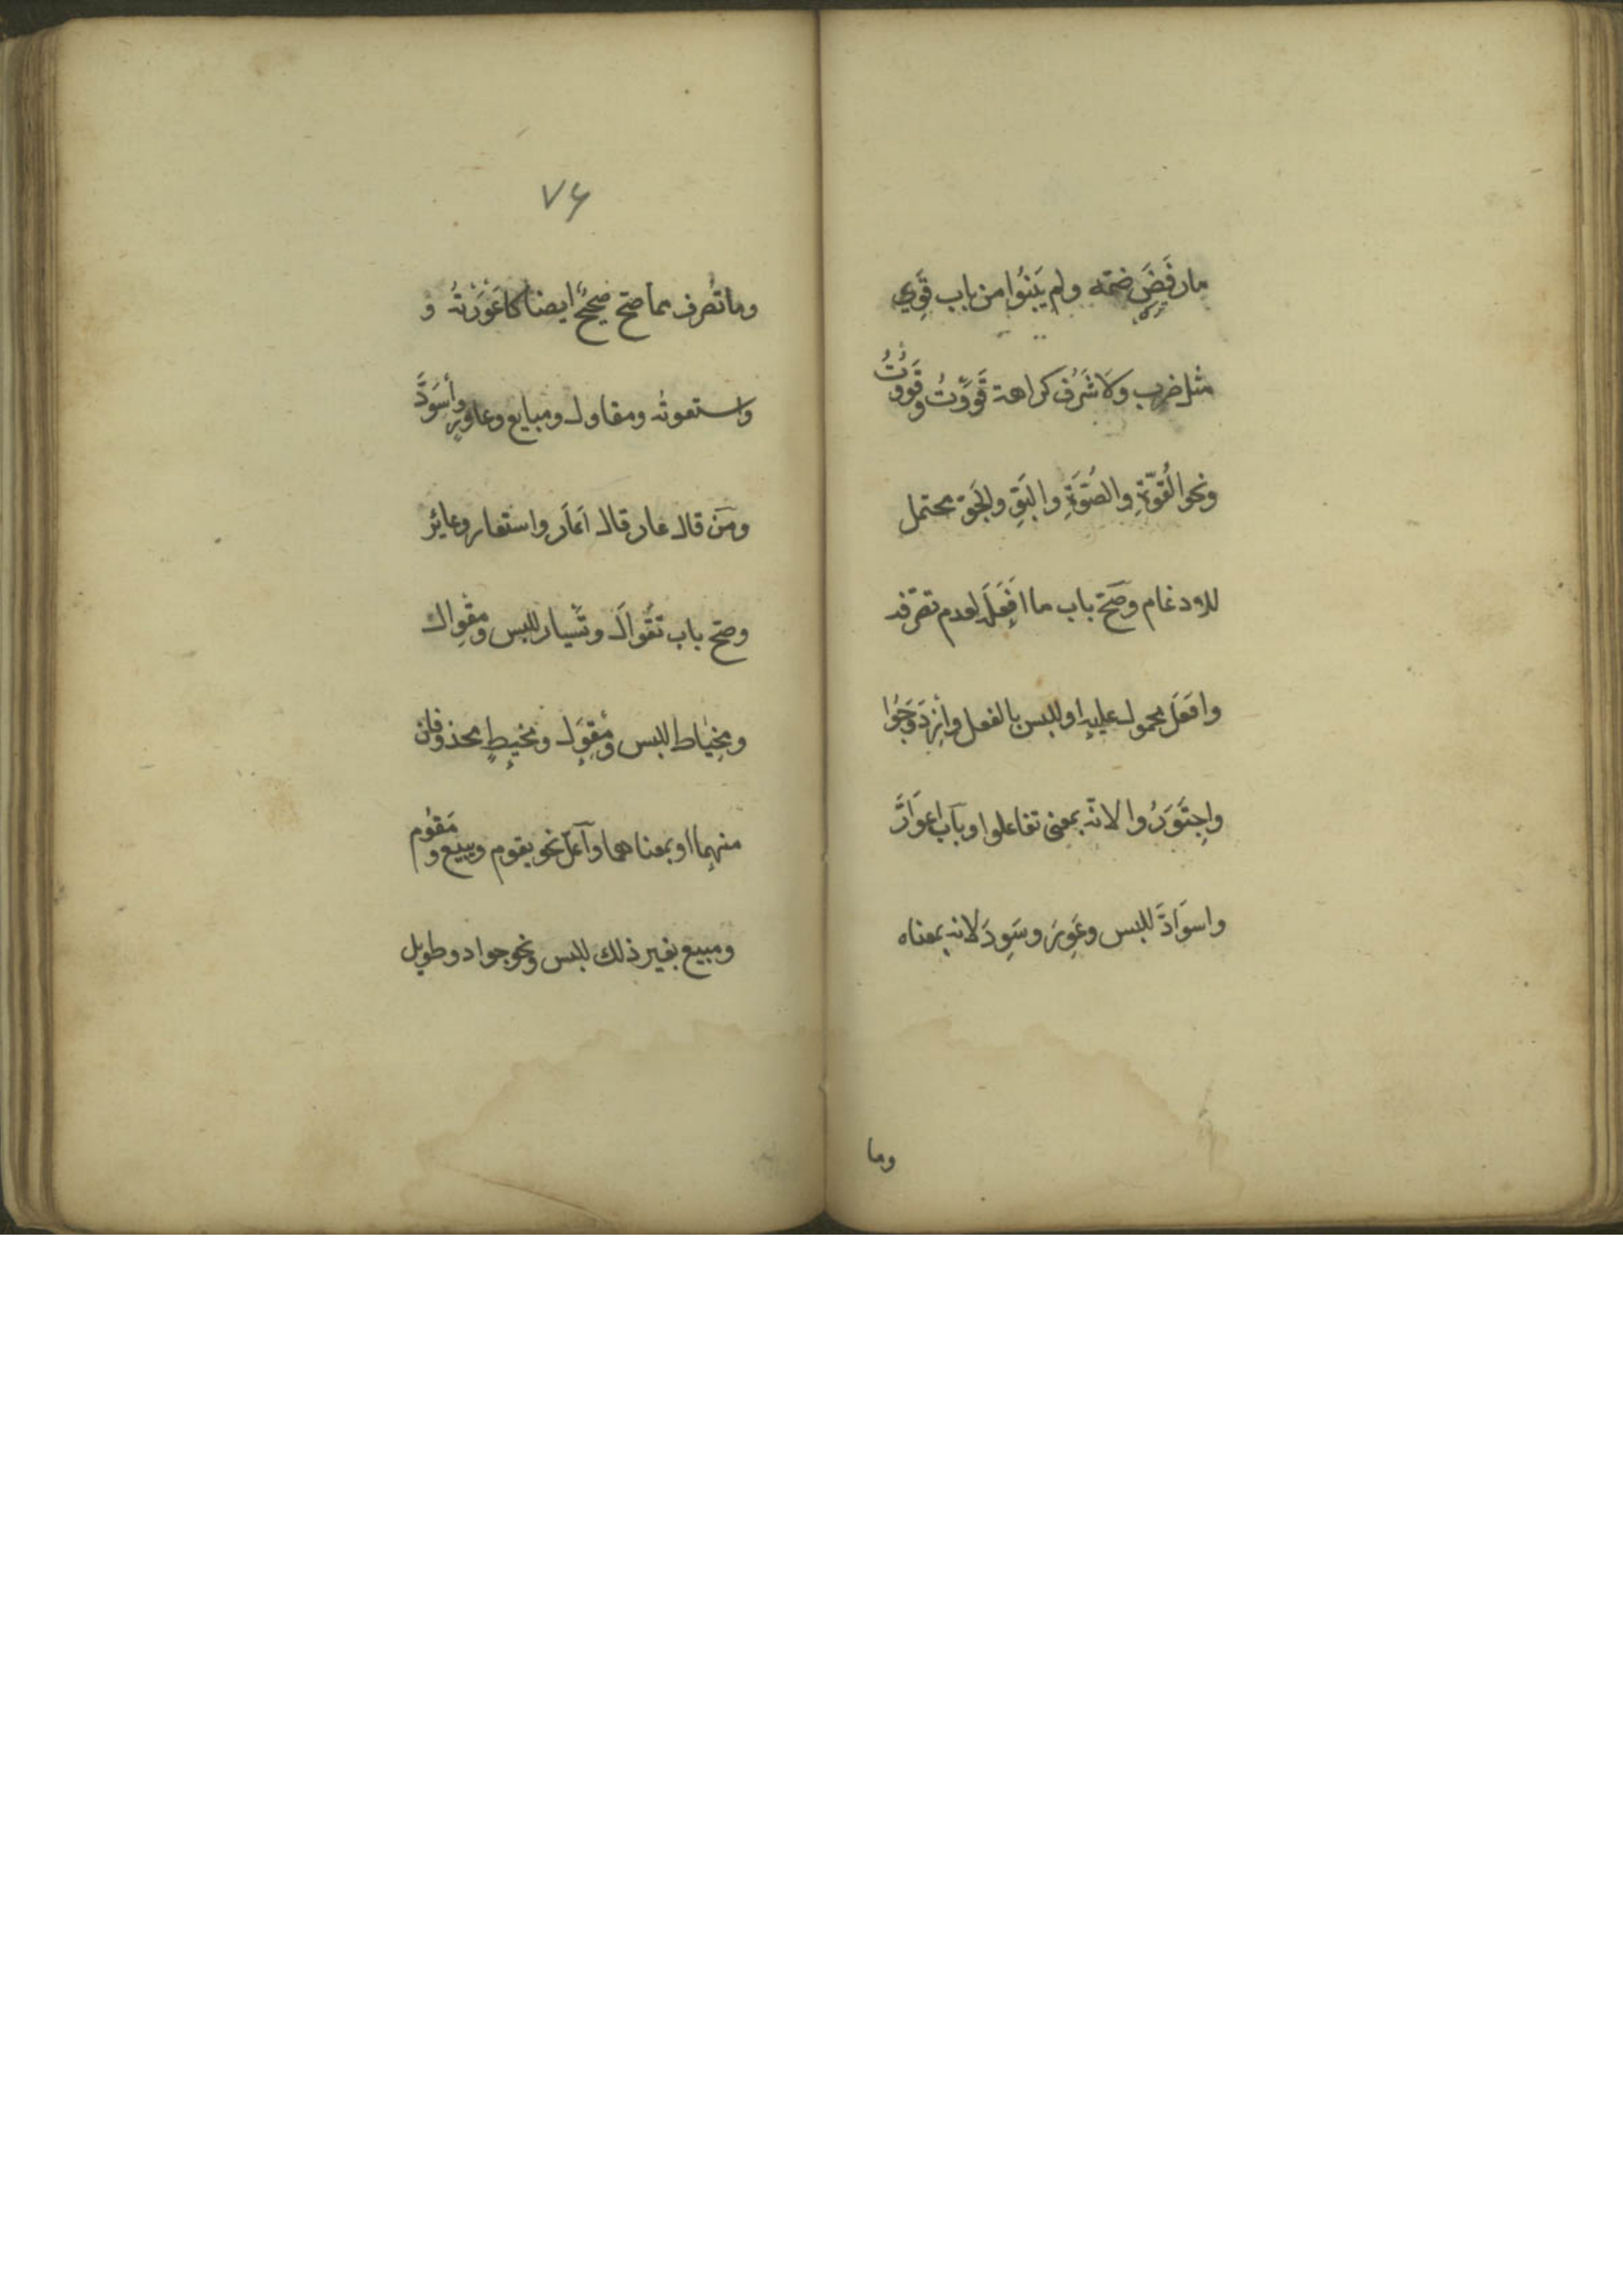 ما رفَضَ ضمّه ولم يَبْنُوا من باب قَوِيَ
مثل ضرب ولا شَرُفَ كراهة قَوَوْتُ وقَوُوْتُ
ونحو القُوَّةِ والصُوَّةِ والبَوِّ والجَوِّ محتمل
للادغام وصَحّ باب ما اَفْعَلَه لعدم تصرّفه
وافعَلَ محمول عليه او للبس بالفعل وازْدَوَجُوا
واجتَوَرُوا لانّه بمعنى تفاعلوا وباب اعوَارَّ
واسوَادَّ للبس وعَوِرَ وسَوِدَ لانه بمعناه
وما
٧٤
وما تُصرف مما صحّ صحيحٌ ايضا كاَعْوَرْتهُ و
واستعورته ومقاول ومبايع وعاوِرٍ وأسوَدَّ
ومَن قال عار قال اَعَارَ واستعار وعائر
وصحّ باب تَقْوَال وتَسْيار للبس ومِقْوال
ومِخْيَاط للبس ومِقْوَل ومِخْيَطٍ محذوفان
منهما او بمعناهما واُعلّ نحو يقوم ويبيع ومَقُوم
ومبيع بغير ذلك للبس ونحو جواد وطويل